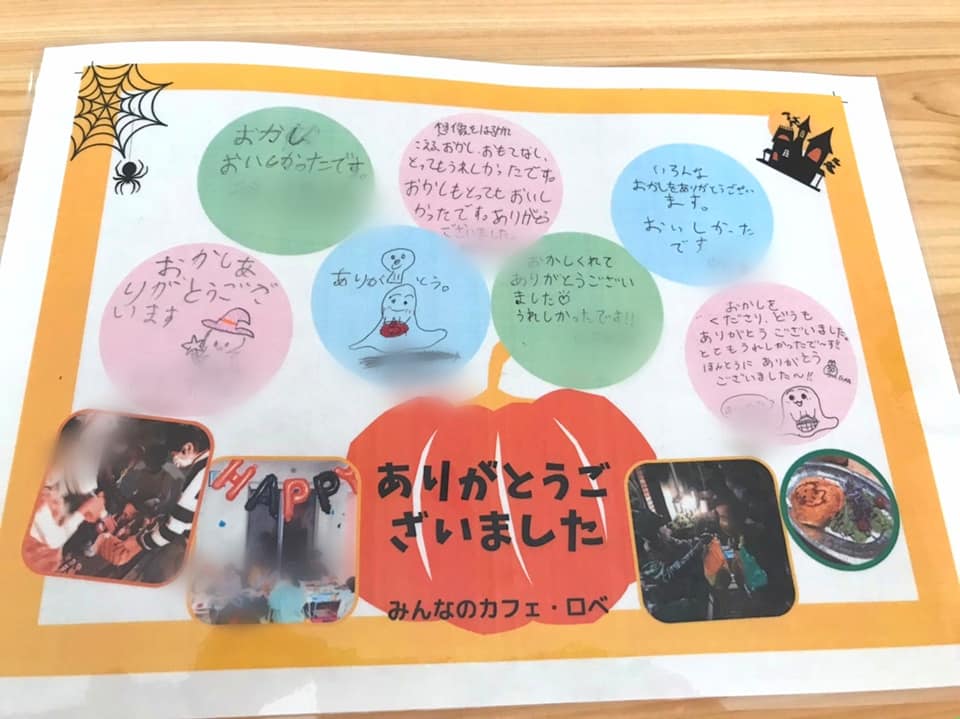 おかし
おいしかったです。
想像をはるかに
こえるおかし、おもてなし、
とってもうれしかったです。
おかしもとってもおいし
かったです。ありがとう
ございました。
いろんな
おかしをありがとうござい
ます。
おいしかった
です
おかしあ
りがとうござ
います
ありがとう。
おかしくれて
ありがとうござい
ました
うれしかったです!!
おかしを
くださり、どうも
ありがとうございました。
とてもうれしかったで〜す!
ほんとうにありがとう
ございました〜!!
HAPPY
ありがとうご
ざいました
みんなのカフェ・ロベ